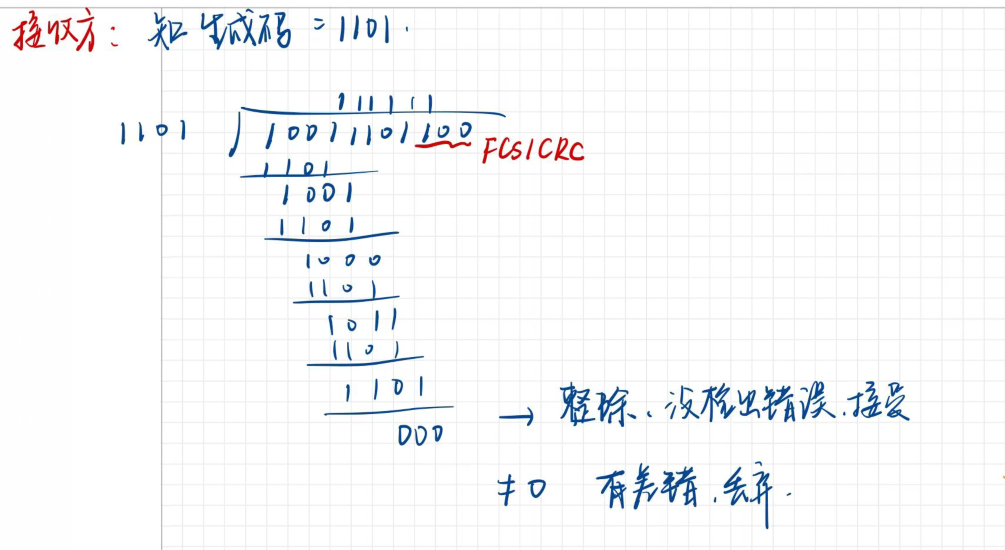 接收方: 知生成码 = 1101.
111111
1101 1001 1101 100 FCS/CRC
1101
1001
1101
1000
1101
1011
1101
1101
000 → 整除、没检出错误.接受
≠0 有差错.丢弃.